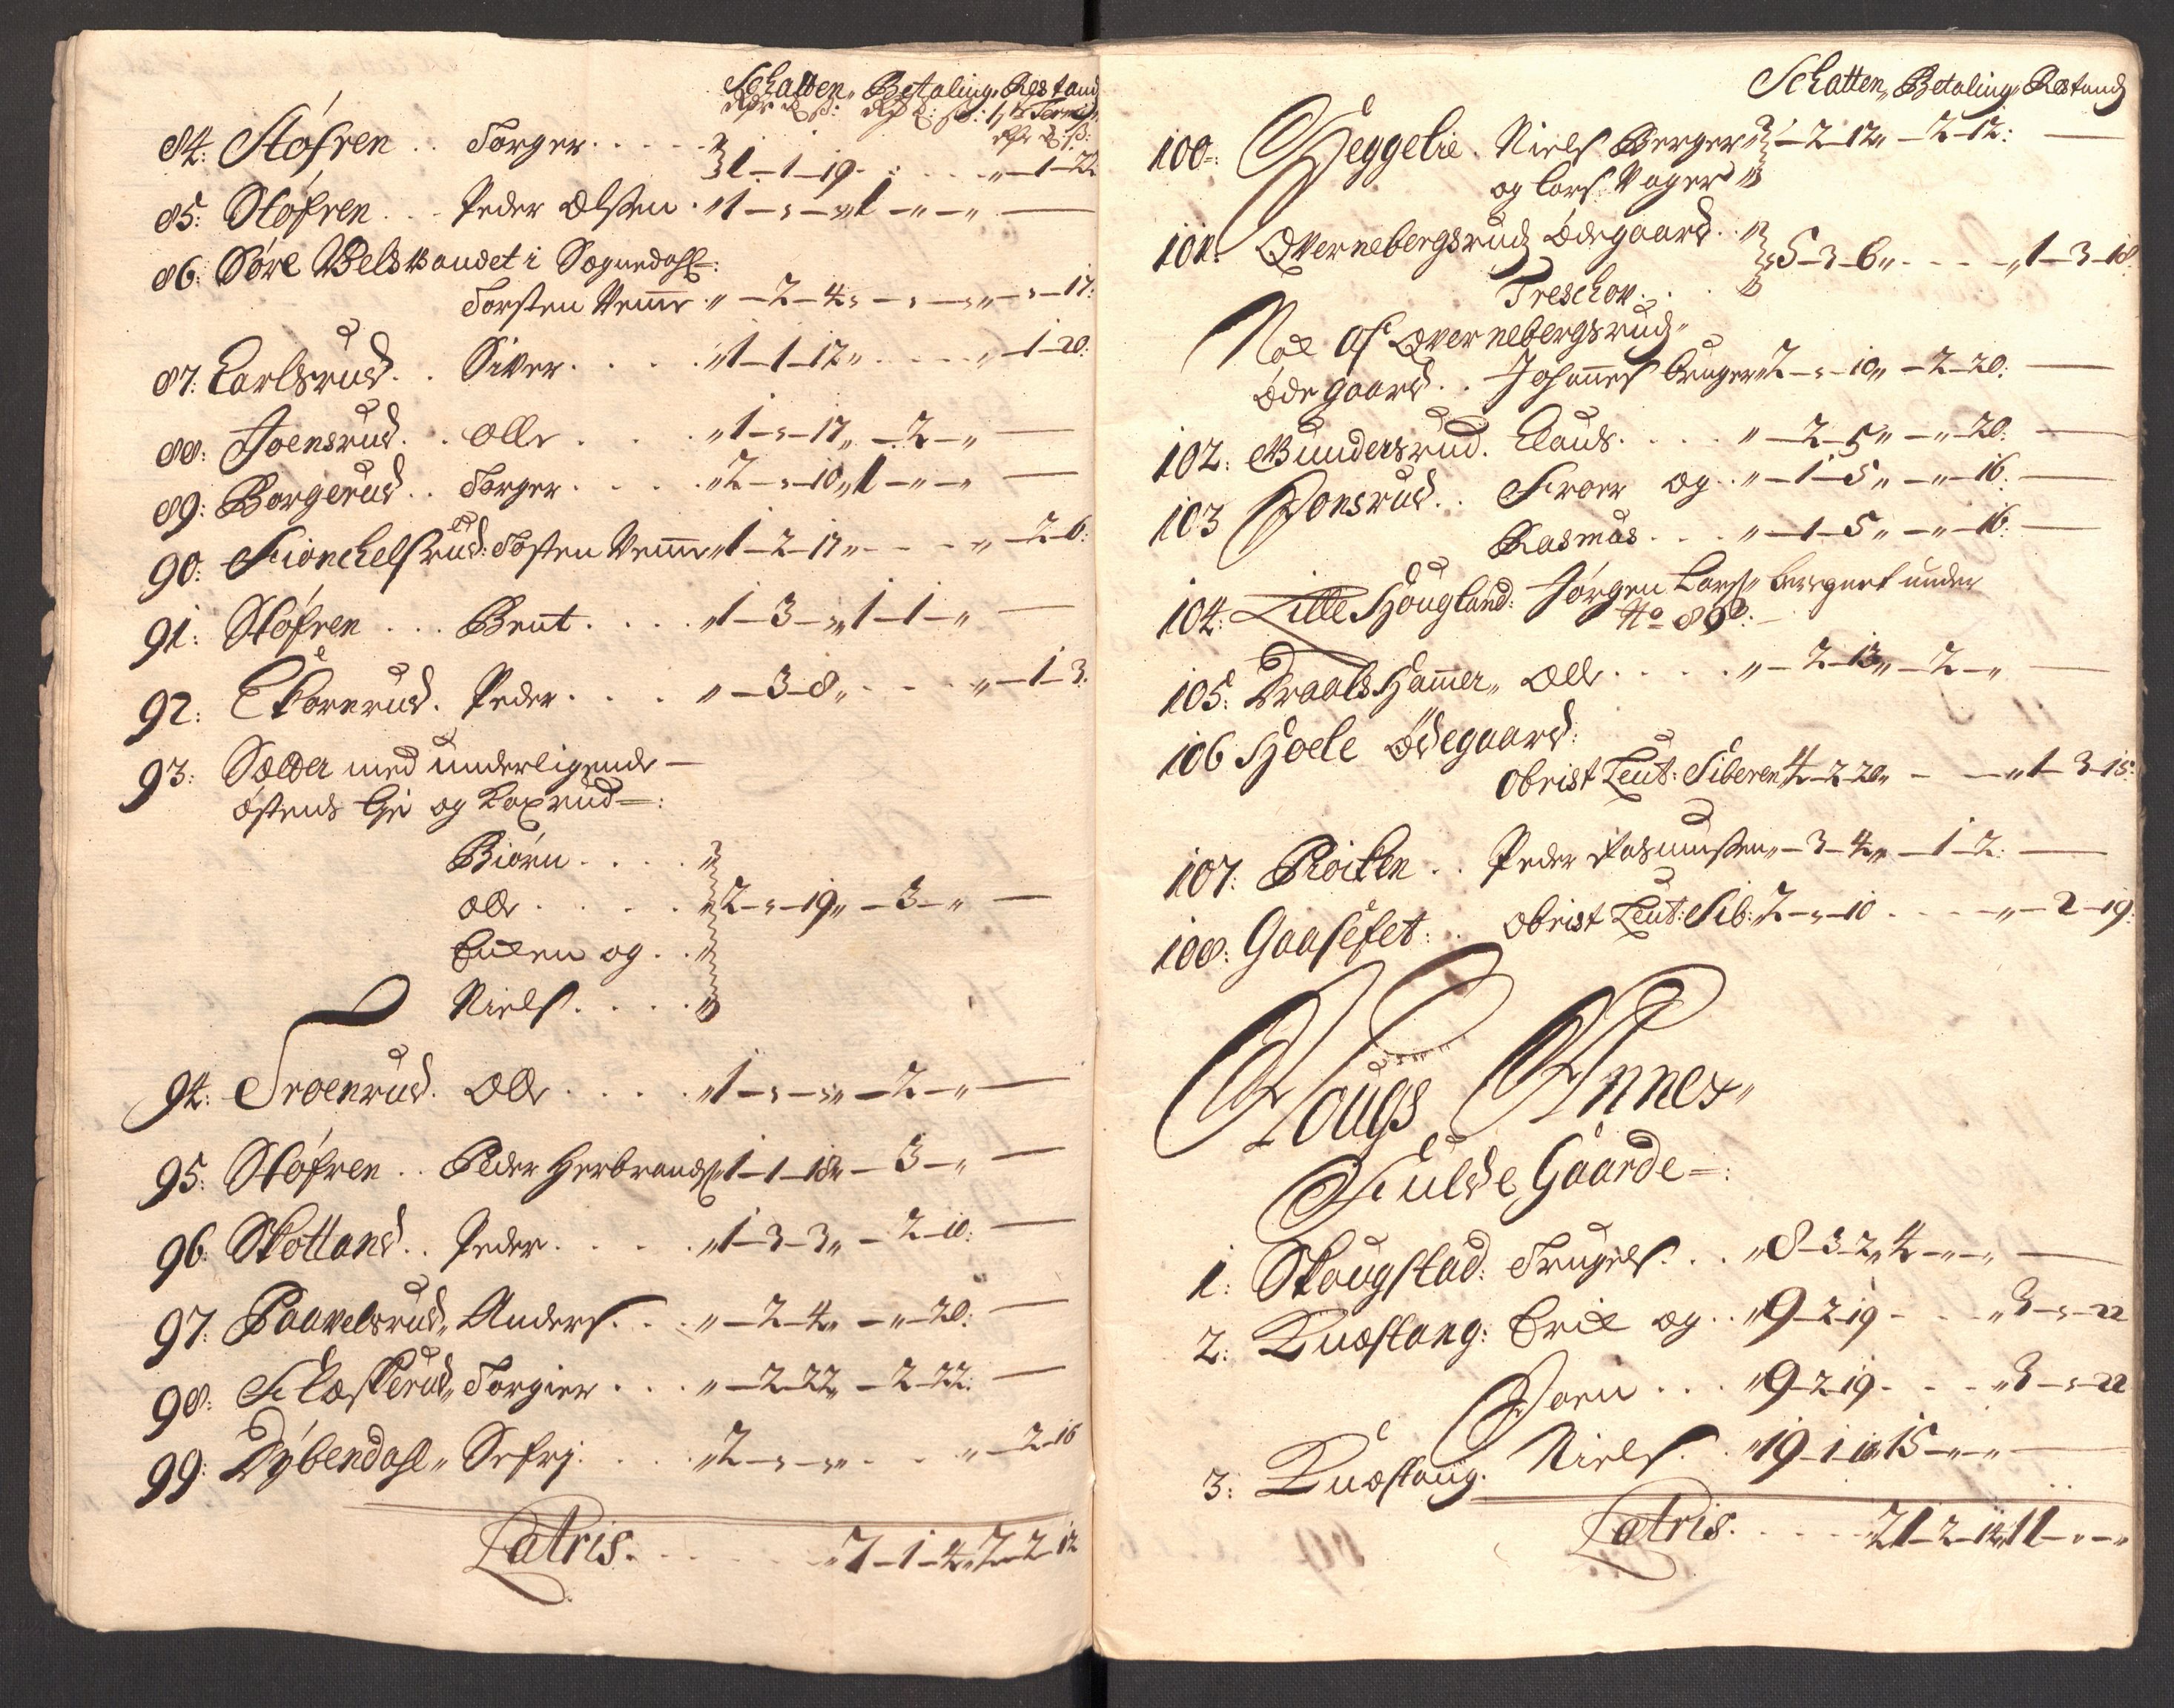 Schatten„ Betaling„ Restand
Rdr ℔ ß: Rdr ℔: ß: 1ste Termin
Rdr ℔ ß:
84: Støfren .. Torger.....
1–1–19–: ....„–1–22
85: Støfren... Peder Olssen.„1–„–„1–„–„ —
86: Søre Velsvandet i Sognedahl=:
Torsten Vemme „–2–4„–„–„„–„–17:
87: Carlsrud.. Siver....„1–1–12„....„–1–20:
88: Joensrud.. Olle....„1–„–17„–2–„ —
89: Borgerud.. Torger....„2–„–10„1–„–„ —
90: Skionchelsrud: Tosten Vemme„1–2–17„–...„–2–6:
91: Støfren... Brut....„1–3–„„1–1–„ —
92: Ekornrud. Peder...„–3–8„–..„–1–3:
93: Sælder med underligende –
østends Eje og Laxrud=:
Biørn....„
Olle....„2–„–19„–3–„ —
Emben og..„
Niels....„
94: Troenrud. Olle....„1–„–„„–2–„ —
95: Støfren.. Peder Herbrands„1–1–18„–3–„ —
96: Skotland.. Peder....„1–3–3„–2–10: —
97: Paavelsrud„ Anders...„–2–4„–„–20: —
98: Skæskerud„ Torgier...„–2–22„–2–22: —
99: Dybendahl„ Sefrj....„2–„–„„...„–2–16
Latris.......„7–1–4„7–2–12
Schatten„ Betaling„ Restand
100: Heggelie. Niels Berger „–2–12„–2–12: —
og Lars Vager „
101: Qvernebergsrud Ødegaard..„
5–3–6„....„1–3–18:
Treschou...
Noch af Qvernebergsrud„
Ødegaard.. Johannes Cruger„2–„–10„–2–20: —
102: Gundersrud. Claus....„–2–5„–„–20: —
103 Jonsrud.. Troer og..„–1–5„–„–16: —
Rasmus...„–1–5„–„–16: —
104: Lille Hougland: Jørgen Lars„ beregnet under
No 89:
105: Kraals Hammer„ Olle....„–2–13„–2–„ —
106 Hoele Ødegaard:
Obrist Leut: Siberen„4–2–20„–.–„1–3–15:
107: Roiken.. Peder Rasmussen„–3–4„–1–2: —
108: Gaasefet:. Obrist Leut: Sib:„2–„–10....„–2–19:
Hougs Annex„
Fulde Gaarde=:
1: Skougstad: Truyels...„8–3–2„4–„–„ —
2: Knæstang: Erik og..„9–2–19–..„3–„–22
Joen...„9–2–19–..„3–„–22
3: Knæstang. Niels.. „19–1–14„15–„–„ —
Latris.....„21–2–14„11–„–„